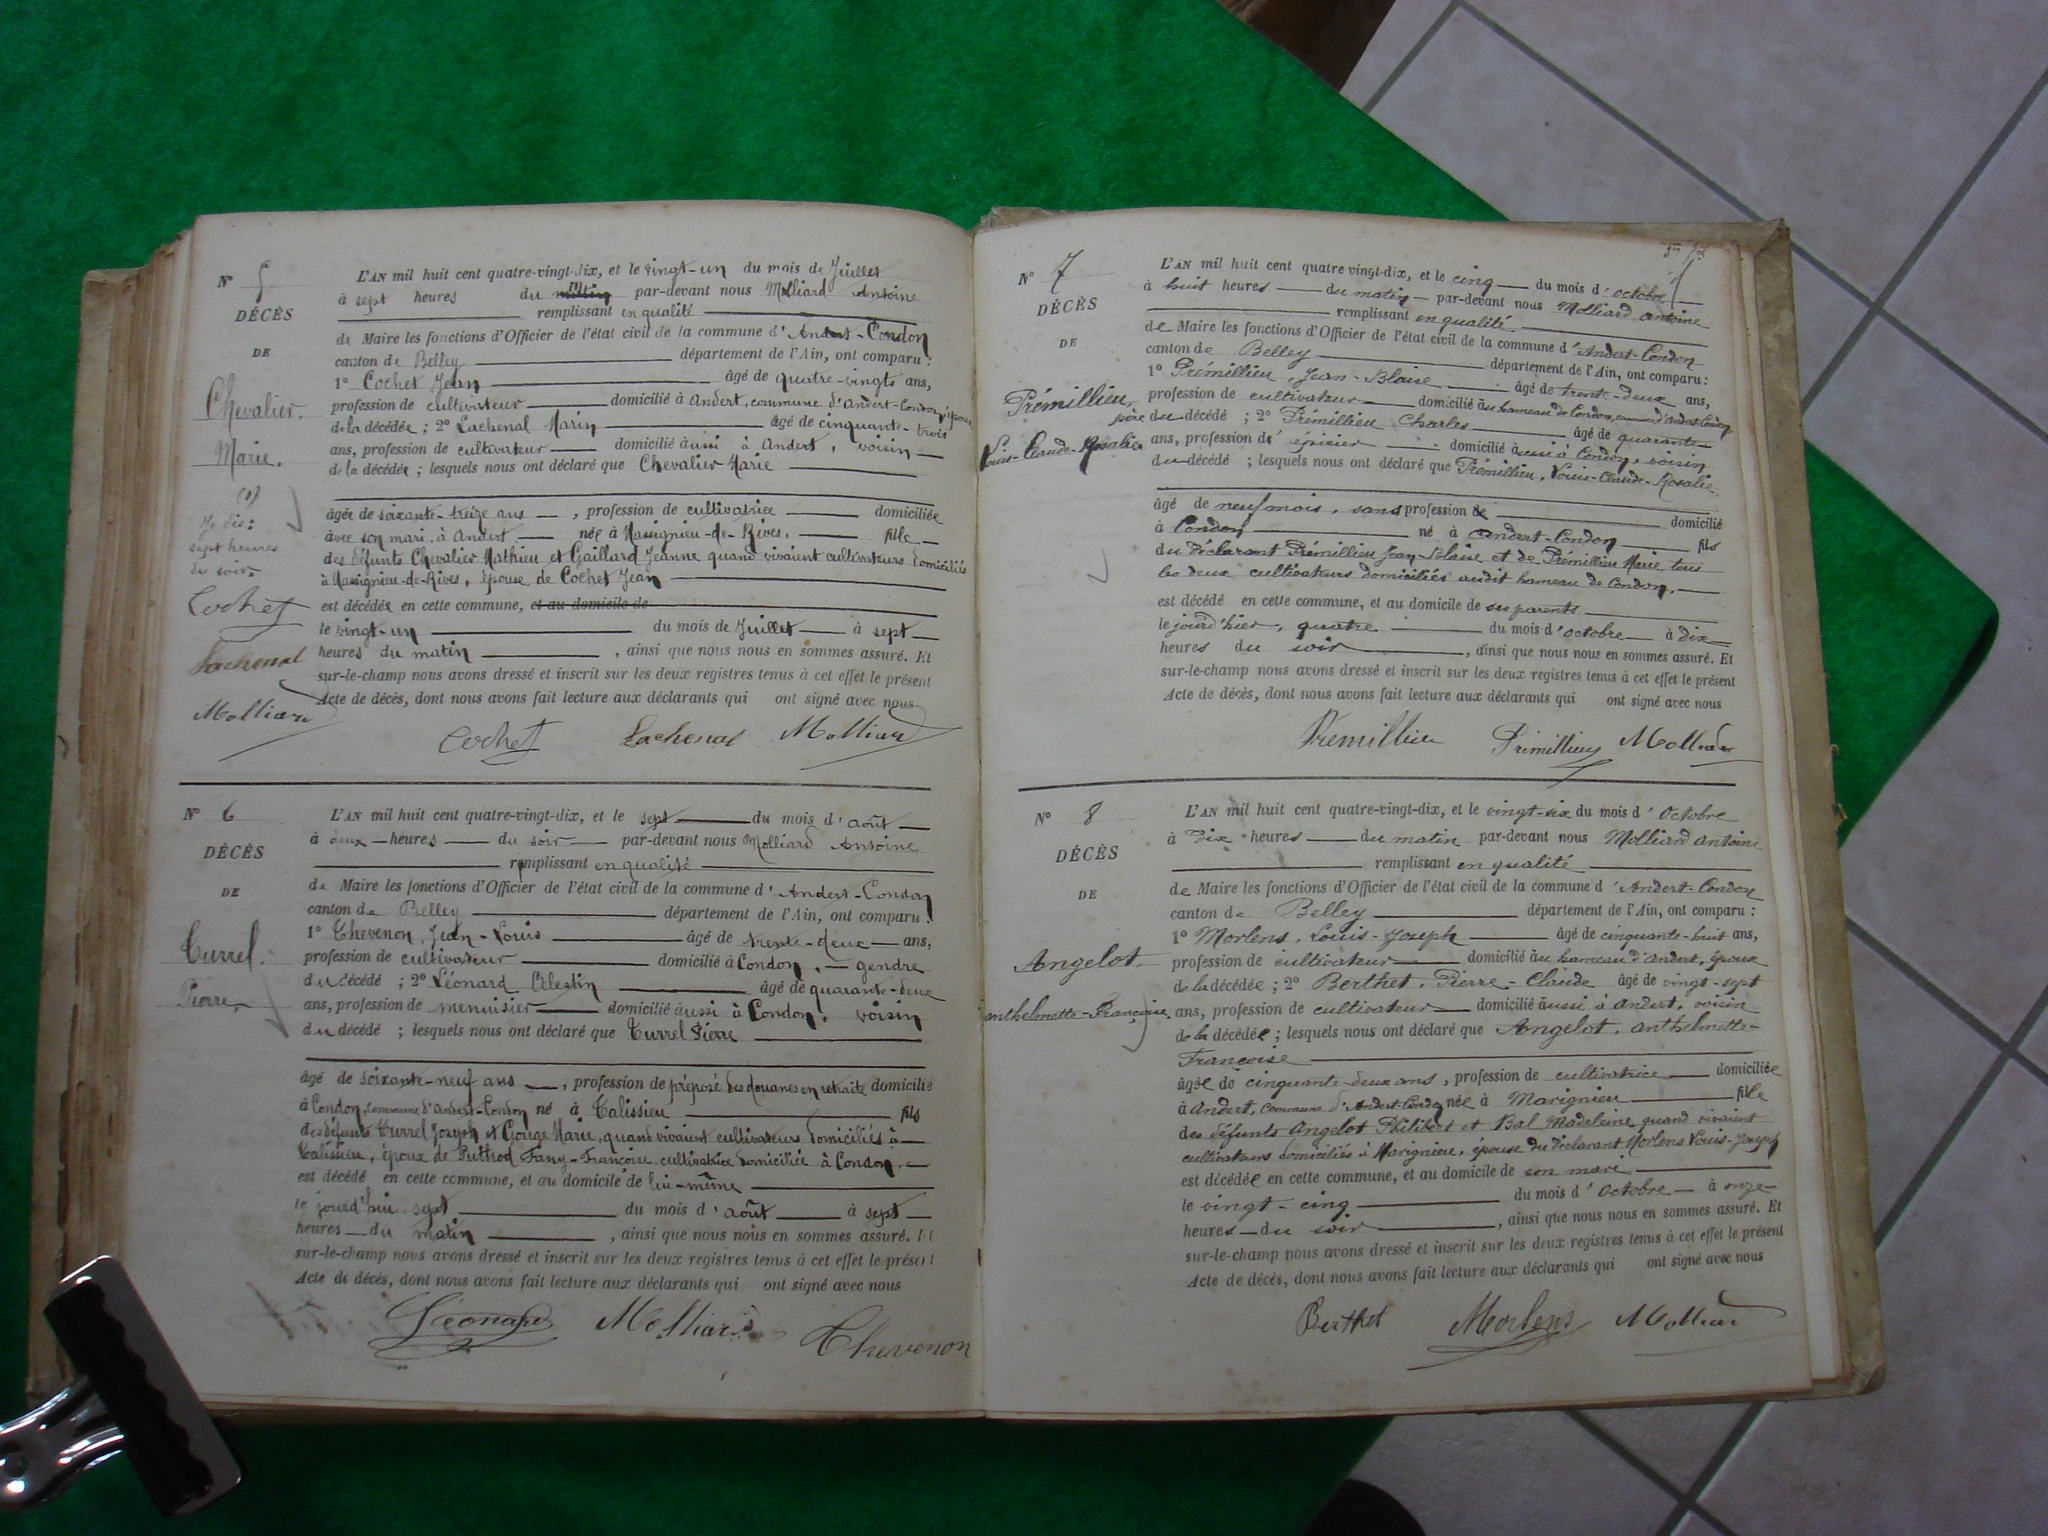 N° 5
DÉCÈS
DE
Chevalier.
Marie.
(1)
Je dis:
sept heures
du soir.
Cochet
Lachenal
Molliard
L'AN mil huit cent quatre-vingt-dix, et le vingt-un du mois de Juillet
à sept heures du matin (1) par-devant nous Molliard Antoine
remplissant en qualité
de Maire les fonctions d'Officier de l'état civil de la commune d'Andert-Condon
canton de Belley département de l'Ain, ont comparu :
1° Cochet Jean âgé de quatre-vingts ans,
profession de cultivateur domicilié à Andert, commune d'Andert-Condon, époux
de la décédée ; 2° Lachenal Marin âgé de cinquante-trois
ans, profession de cultivateur domicilié aussi à Andert, voisin
de la décédée ; lesquels nous ont déclaré que Chevalier Marie
âgée de soixante-treize ans , profession de cultivatrice domiciliée
avec son mari, à Andert née à Massignieu-de-Rives, fille
des défunts Chevalier Mathieu et Gaillard Jeanne quand vivaient cultivateurs domiciliés
à Massignieu-de-Rives, épouse de Cochet Jean
est décédée en cette commune, et au domicile de
le vingt-un du mois de Juillet à sept
heures du matin , ainsi que nous nous en sommes assuré. Et
sur-le-champ nous avons dressé et inscrit sur les deux registres tenus à cet effet le présent
Acte de décès, dont nous avons fait lecture aux déclarants qui ont signé avec nous
Cochet Lachenal Molliard
N° 6
DÉCÈS
DE
Turrel.
Pierre,
L'AN mil huit cent quatre-vingt-dix, et le sept du mois d'août
à deux heures du soir par-devant nous Molliard Antoine
remplissant en qualité
de Maire les fonctions d'Officier de l'état civil de la commune d'Andert-Condon
canton de Belley département de l'Ain, ont comparu :
1° Thevenon, Jean-Louis âgé de trente-deux ans,
profession de cultivateur domicilié à Condon, gendre
du décédé ; 2° Léonard Célestin âgé de quarante-deux
ans, profession de menuisier domicilié aussi à Condon, voisin
du décédé ; lesquels nous ont déclaré que Turrel Pierre
âgé de soixante-neuf ans , profession de préposé des douanes en retraite domicilié
à Condon, commune d'Andert-Condon né à Talissieu fils
des défunts Turrel Joseph et Gouge Marie, quand vivaient cultivateurs domiciliés à
Talissieu, époux de Puthod Fany-Françoise, cultivatrice domiciliée à Condon,
est décédé en cette commune, et au domicile de lui-même
le jourd'hui sept du mois d'août à sept
heures du matin , ainsi que nous nous en sommes assuré. Et
sur-le-champ nous avons dressé et inscrit sur les deux registres tenus à cet effet le présent
Acte de décès, dont nous avons fait lecture aux déclarants qui ont signé avec nous
Léonard Molliard Thevenon
N° 7
DÉCÈS
DE
Prémillieu,
Louis-Claude-Rosalie
L'AN mil huit cent quatre-vingt-dix, et le cinq du mois d'octobre
à huit heures du matin par-devant nous Molliard antoine
remplissant en qualité
de Maire les fonctions d'Officier de l'état civil de la commune d'Andert-Condon
canton de Belley département de l'Ain, ont comparu :
1° Prémillieu, Jean-Blaise âgé de trente-deux ans,
profession de cultivateur domicilié au hameau de Condon, commune d'Andert-Condon
père du décédé ; 2° Prémillieu Charles âgé de quarante
ans, profession d'épicier domicilié aussi à Condon, voisin
du décédé ; lesquels nous ont déclaré que Prémillieu, Louis-Claude-Rosalie,
âgé de neuf mois, sans profession de domicilié
à Condon né à andert-Condon fils
du déclarant Prémillieu Jean-Blaise et de Prémillieu Marie, tous
les deux cultivateurs domiciliés audit hameau de Condon.
est décédé en cette commune, et au domicile de ses parents
le jourd'hier, quatre du mois d'octobre à dix
heures du soir , ainsi que nous nous en sommes assuré. Et
sur-le-champ nous avons dressé et inscrit sur les deux registres tenus à cet effet le présent
Acte de décès, dont nous avons fait lecture aux déclarants qui ont signé avec nous
Prémillieu Prémillieu Molliard
N° 8
DÉCÈS
DE
Angelot.
anthelmette-Françoise.
L'AN mil huit cent quatre-vingt-dix, et le vingt-six du mois d'Octobre
à Dix heures du matin par-devant nous Molliard antoine
remplissant en qualité
de Maire les fonctions d'Officier de l'état civil de la commune d'Andert-Condon
canton de Belley département de l'Ain, ont comparu :
1° Morlens, Louis-Joseph âgé de cinquante-huit ans,
profession de cultivateur domicilié au hameau d'andert, époux
de la décédée ; 2° Berthet, Pierre-Claude âgé de vingt-sept
ans, profession de cultivateur domicilié aussi à andert, voisin
de la décédée ; lesquels nous ont déclaré que Angelot, anthelmette-
Françoise
âgée de cinquante-deux ans, profession de cultivatrice domiciliée
à Andert, commune d'Andert-Condon née à Marignieu fille
des défunts Angelot Philibert et Bal Madeleine quand vivaient
cultivateurs domiciliés à Marignieu, épouse du déclarant Morlens Louis-Joseph
est décédée en cette commune, et au domicile de son mari
le vingt-cinq du mois d'Octobre à onze
heures du soir , ainsi que nous nous en sommes assuré. Et
sur-le-champ nous avons dressé et inscrit sur les deux registres tenus à cet effet le présent
Acte de décès, dont nous avons fait lecture aux déclarants qui ont signé avec nous
Berthet Morlens Molliard